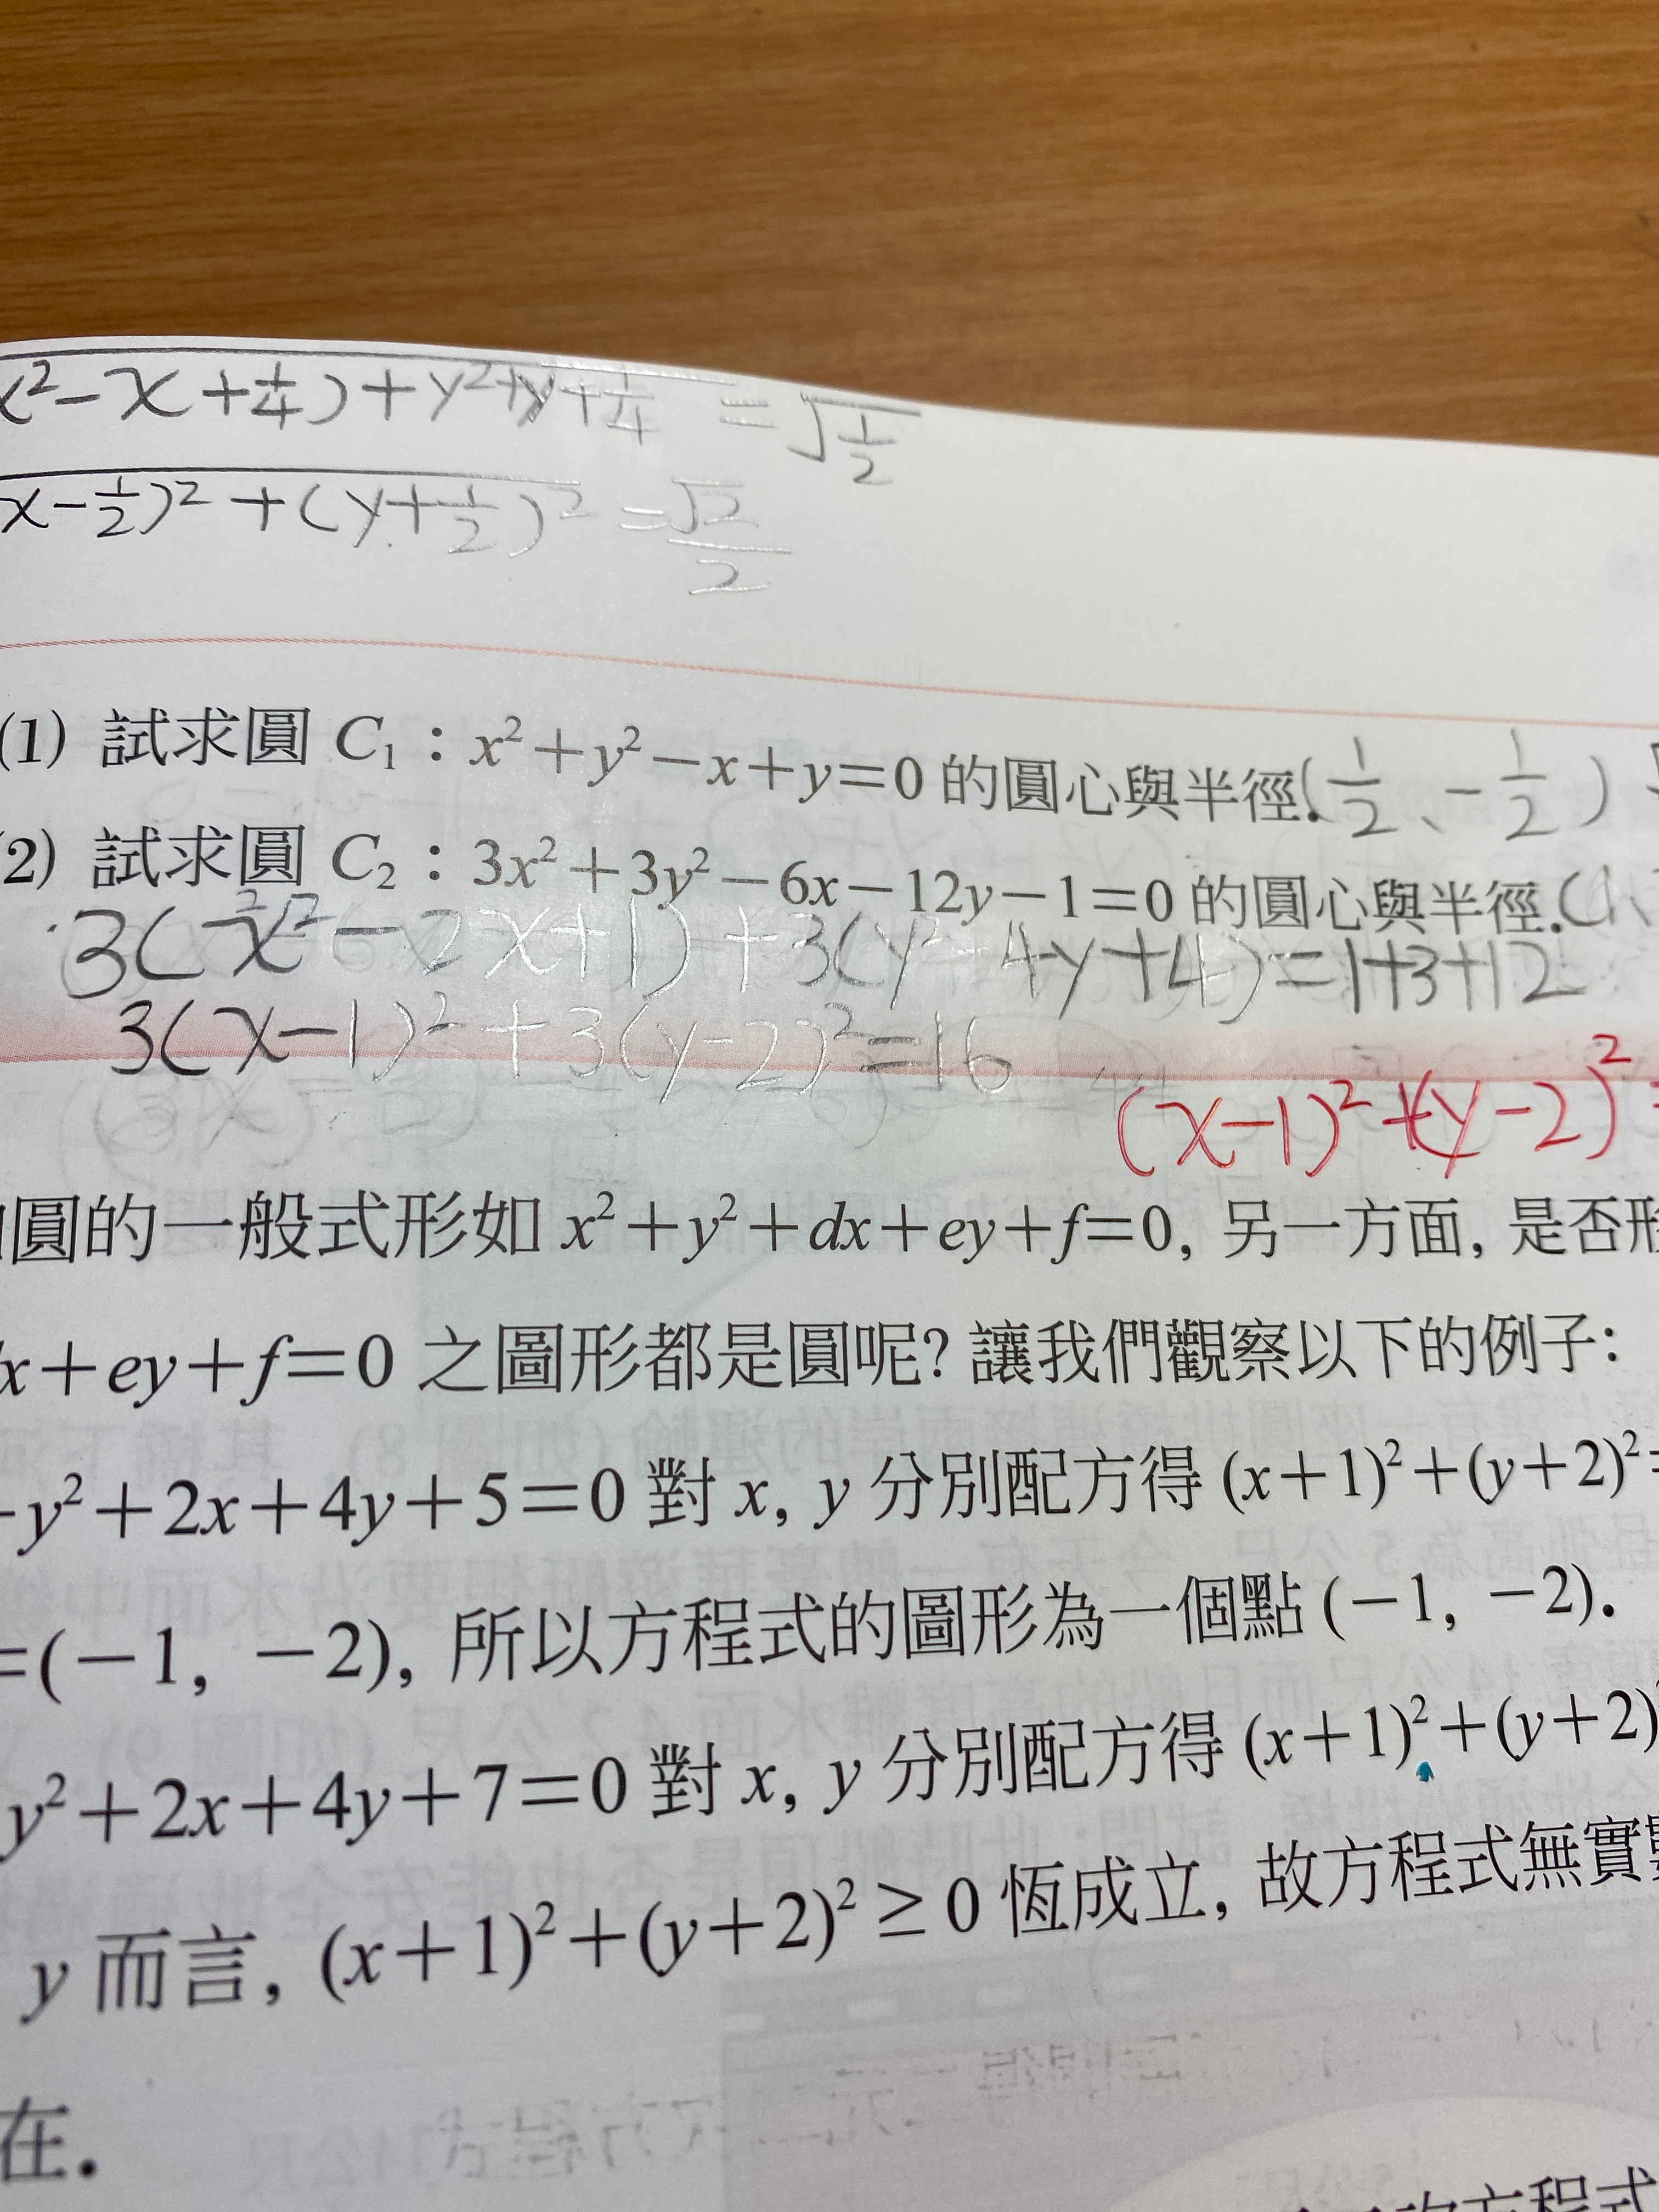 x²-x+1/4)+y²+y+1/4 =√1/2
x-1/2)²+(y+1/2)² =√2/2
(1) 試求圓 C₁：x²+y²-x+y=0 的圓心與半徑.(1/2、-1/2)
2) 試求圓 C₂：3x²+3y²-6x-12y-1=0 的圓心與半徑.(1、
3(x²-2x+1)+3(y²-4y+4)=1+3+12
3(x-1)²+3(y-2)²=16
(x-1)²+(y-2)²
圓的一般式形如 x²+y²+dx+ey+f=0, 另一方面, 是否形
x+ey+f=0 之圖形都是圓呢? 讓我們觀察以下的例子:
y²+2x+4y+5=0 對 x, y 分別配方得 (x+1)²+(y+2)²
=(-1, -2), 所以方程式的圖形為一個點 (-1, -2).
y²+2x+4y+7=0 對 x, y 分別配方得 (x+1)²+(y+2)
y 而言, (x+1)²+(y+2)²≥0 恆成立, 故方程式無實數
在.
方程式